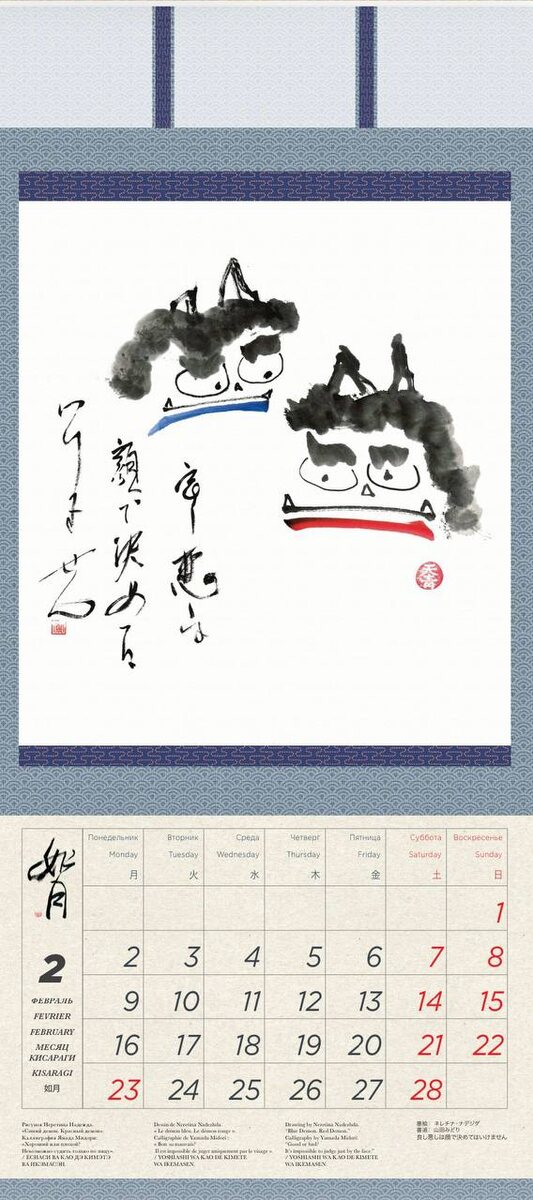 顔で決めては
いけません
如月
2
ФЕВРАЛЬ
FEVRIER
FEBRUARY
МЕСЯЦ
КИСАРАГИ
KISARAGI
如月
Понедельник Вторник Среда Четверг Пятница Суббота Воскресенье
Monday Tuesday Wednesday Thursday Friday Saturday Sunday
月 火 水 木 金 土 日
1
2 3 4 5 6 7 8
9 10 11 12 13 14 15
16 17 18 19 20 21 22
23 24 25 26 27 28
Рисунок Неретина Надежда.
«Синий демон. Красный демон».
Каллиграфия Ямада Мидори:
«Хороший или плохой?
Невозможно судить только по лицу».
/ ЁСИАСИ ВА КАО ДЭ КИМЭТЭ
ВА ИКЭМАСЭН.
Dessin de Neretina Nadezhda.
« Le démon bleu. Le démon rouge ».
Calligraphie de Yamada Midori :
« Bon ou mauvais?
Il est impossible de juger uniquement par le visage ».
/ YOSHIASHI WA KAO DE KIMETE
WA IKEMASEN.
Drawing by Neretina Nadezhda.
"Blue Demon. Red Demon."
Calligraphy by Yamada Midori:
"Good or bad?
It's impossible to judge just by the face."
/ YOSHIASHI WA KAO DE KIMETE
WA IKEMASEN.
墨絵： ネレチナ・ナデジダ
書道： 山田みどり
良し悪しは顔で決めてはいけません